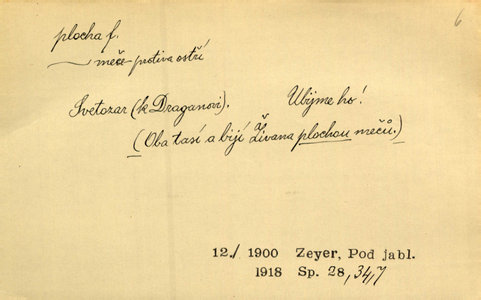 6
plocha f.
~ meče protiva ostří
Svetozar (k Draganovi). Ubijme ho!
(Oba tasí a bijí až Živana plochou mečů.)
12./ 1900 Zeyer, Pod jabl.
1918 Sp. 28, 34,7